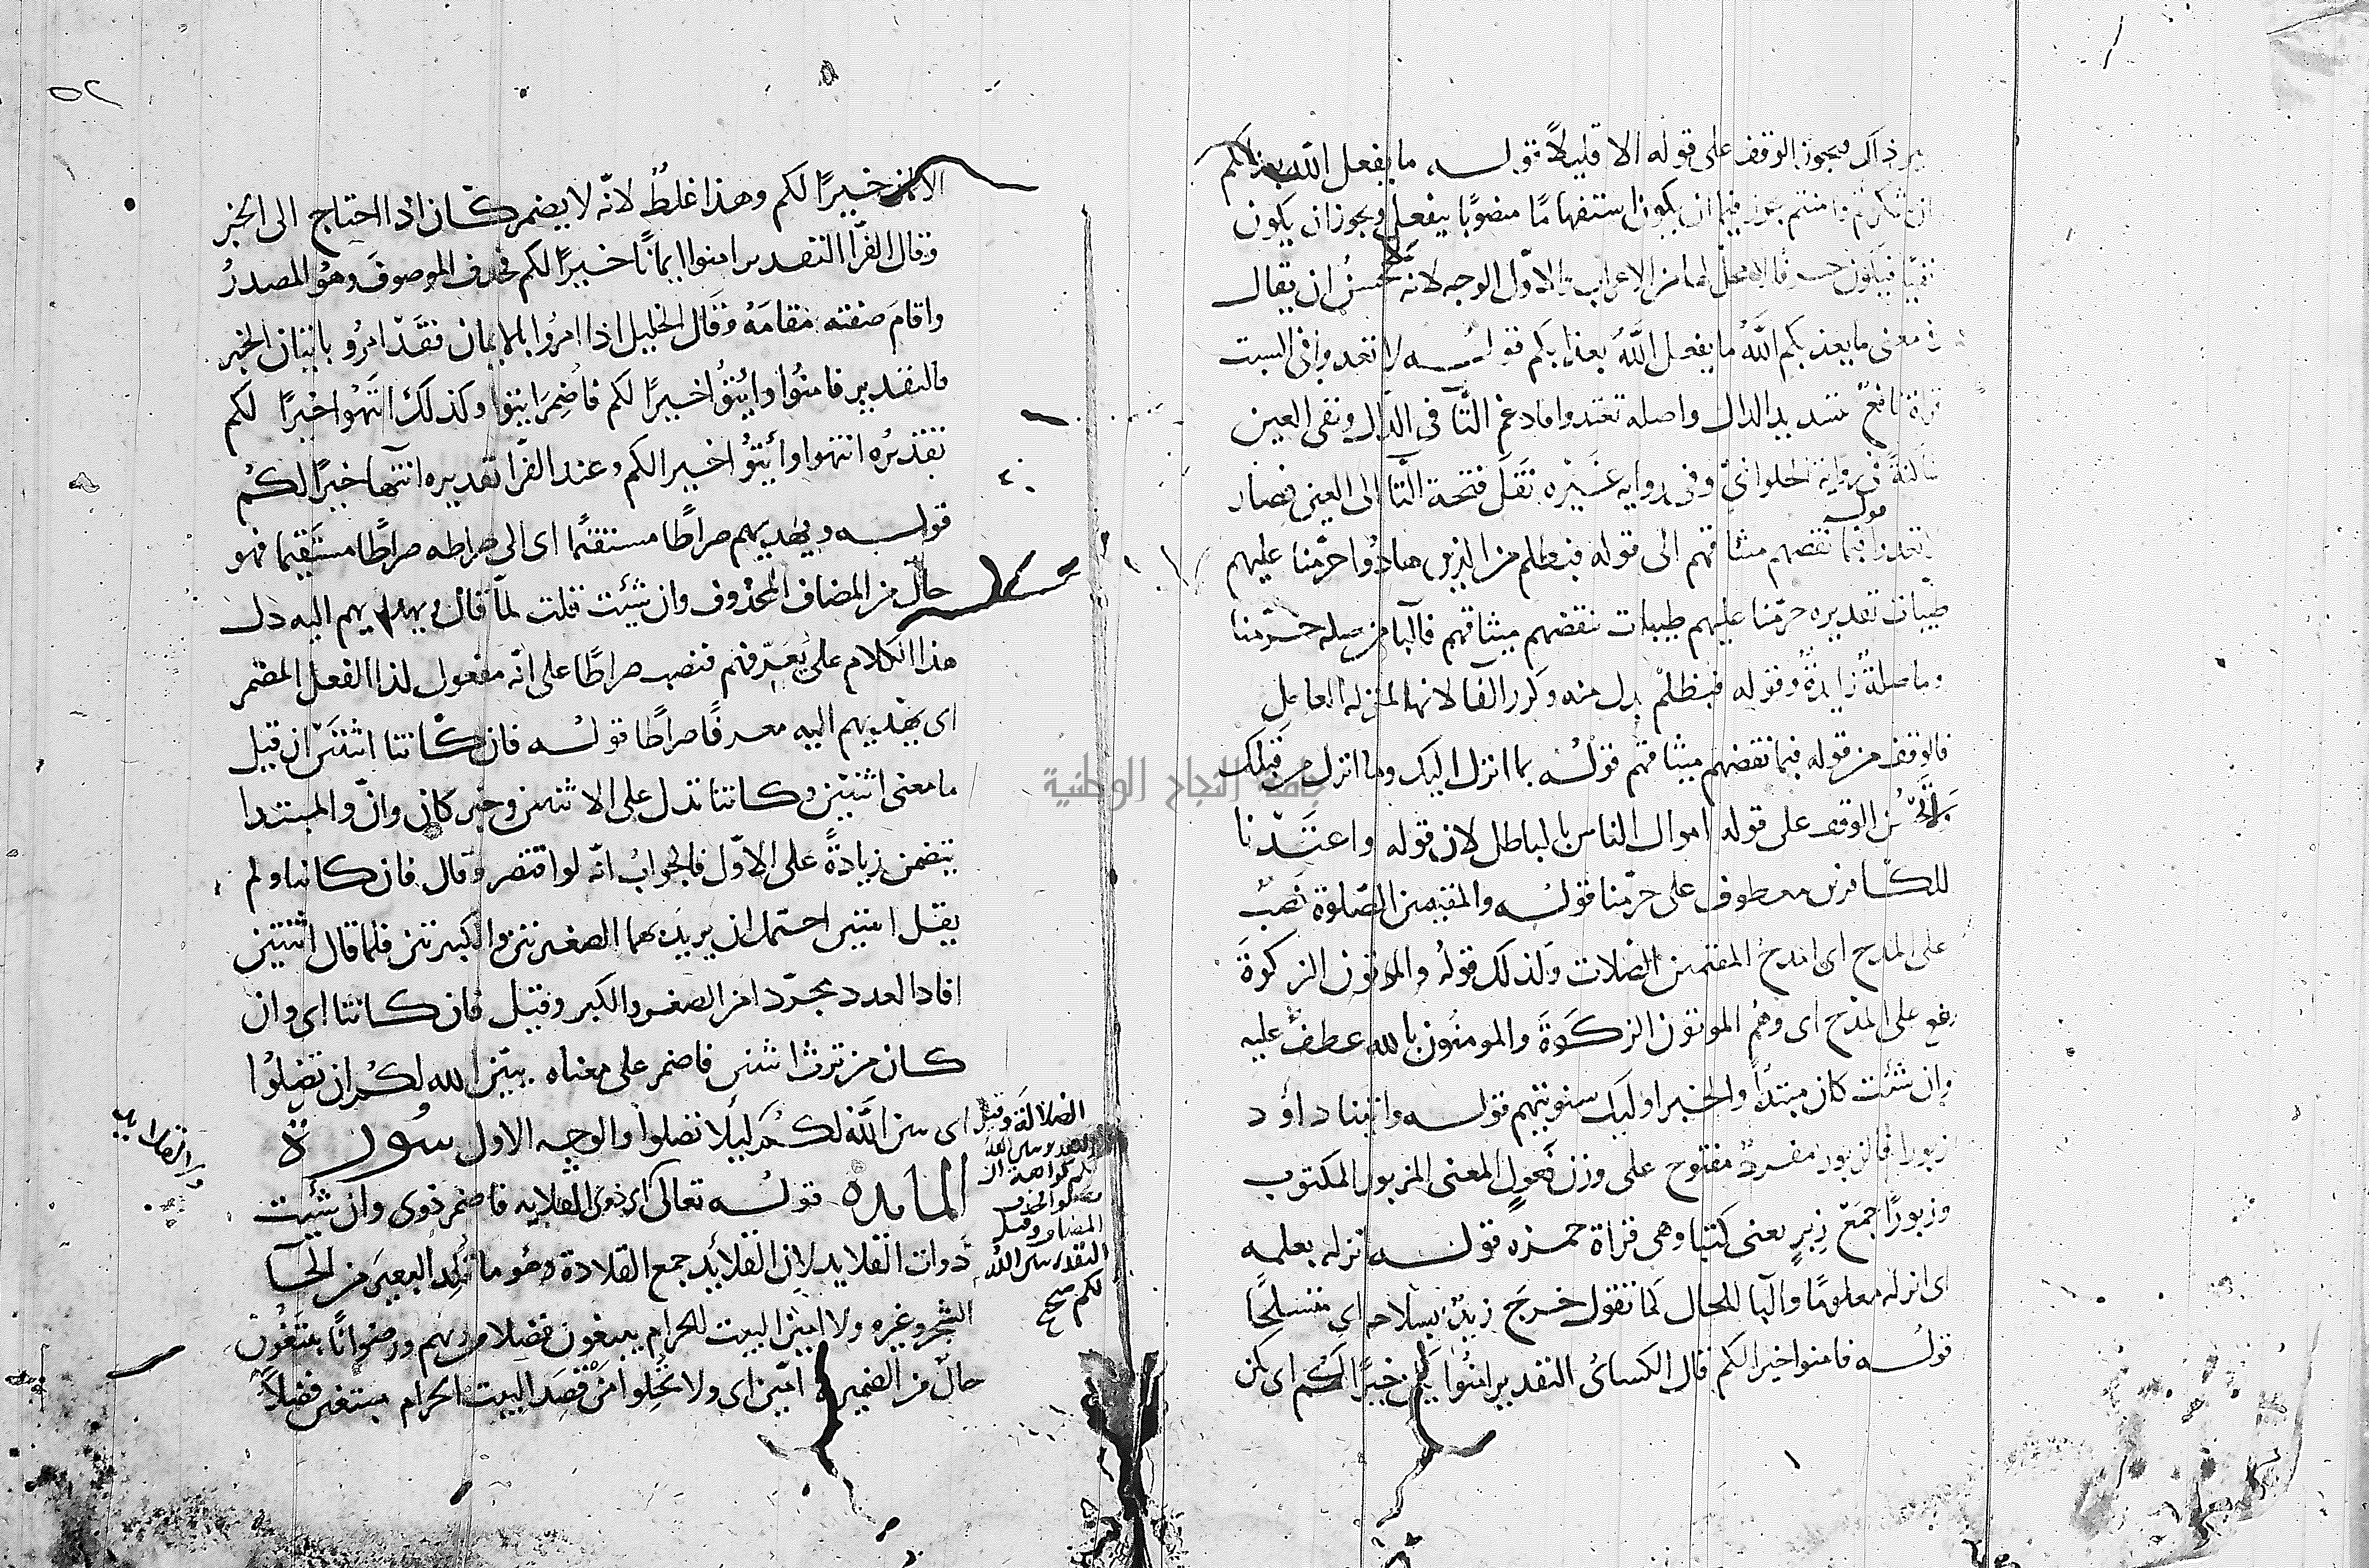 ير ذاك ويجوز الوقف على قوله الا قليلاً قوله ما يفعل الله بعذابكم
ان شكرتم وامنتم يجوز فيما ان يكون استفهامًا منصوبًا بيفعل ويجوز ان يكون
نفيًا فيكون حرفًا لا محل لها من الاعراب والاوّل الوجه لانه يحسن ان يقال
في معنى ما يعذبكم اللهُ ما يفعل اللهُ بعذابكم قوله لا تعدوا في السبت
قراة نافع بتشديد الدال واصله تعتدوا فادغم التّا في الدّال وبقى العين
ساكنة في رواية الحلواني وفي رواية غيره نقل فتحة التّا الى العين فصار
قوله
تعدوا فبما نقضهم ميثاقهم الى قوله فبظلم من الذين هادُوا حرّمنا عليهم
طيبات تقديره حرّمنا عليهم طيبات بنقضهم ميثاقهم فالبا من صله حرّمنا
وما صلةٌ زايدةٌ وقوله فبظلمٍ بدل منه وكرر الفا لانها لمنزلة العامل
فالوقف من قوله فبما نقضهم ميثاقهم قولُه بما انزل اليك وما انزل من قبلك
لا يحسُن الوقف على قوله اموال الناس بالباطل لان قوله واعتَدْنا
للكافرين معطوف على حرّمنا قولُه والمقيمين الصّلوة نصبٌ
على المدح اى امدح المقيمين الصّلات وكذلك قولهُ والموتون الزكوةَ
رفع على المدح اى وهُم الموتون الزكَوةَ والمومنُون بالله عطفٌ عليه
وان شئت كان مبتدًا والخبر اوليك سنوتيهم قوله واتينا داوُد
زبورا فالزبور مفردٌ مفتوح على وزن فَعولٍ المعنى المزبور المكتوب
وزبورًا جمَعْ زِبرٍ يعنى كتبا وهى قراة حمزه قوله انزله بعلمه
اى انزله معلومًا والبا للحال كما تقول خرجَ زيدٌ بسلاحه اى متسلحًا
قولُه فامنوا خيرا لكم قال الكسائى التقدير امنُوا يكن خيرًا لكم اى يكن
٥٢
الايمان خيرًا لكم وهذا غلطٌ لانّه لا يضمر كان اذ احتاج الى الخبر
وقال الفرّا التقدير امنوا ايمانًا خيرًا لكم فحذف الموصوفَ وهُو المصدرُ
واقامَ صفته مقامَهُ وقَال الخليل اذا امرُوا بالايمان فقَدْ امرُو باتيان الخير
فالتقدير فامنُوا وايتوُا خيرًا لكم فاُضمِرَ ايتوا وكذلكَ انتهُوا خيرًا لكم
تقديرُه انتهوا وأيتوُا خيرا لكم وعند الفرّا تقديره انتهآ خيرًا لكُم
قوله ويهديهم صراطًا مستقيمًا اى الى صراطه صراطًا مستقيما فهو
حالٌ من المضاف المحذوف وان شئت قلت لمّا قال ويهديهم اليه دل
هذا الكلام على يُعرّفهم فنصب صراطًا على انّه مفعول لذا الفعل المضمر
اى يهديهم اليه معرفًا صراطا قولُه فان كانتا اثنتين ان قيل
ما معنى اثنتين وكانتا تدل على الاثنتين وخبر كان وانّ والمبتدا
يتضمن زيادةً على الاوّل فالجوابُ انّه لو اقتصر وقال فان كانتا ولم
يقل اثنتين احتمل ان يريد بهما الصغيرتين والكبيرتين فلما قال اثنتين
افاد العدد مجرّدا من الصغر والكبر وقيل فان كانتا اى وان
كان من ترث اثنتين فاضمر على معناه يبيّن الله لكُم ان تضلوُا
اى يبين اللَّه لكُم لِيَلا تضلوا والوجه الاول سُورة
المايدة قولُه تعالى اى ذوى القلايد فاضمر ذوى وان شئت
ذوات القلايد لان القلائد جمع القلادة وهُو ما قُلِّد البعير من لحآ
الشجر وغيره ولا امين البيت الحرام يبتغون فضلا من ربهم ورضوانًا يبتغُون
حالٌ من الضمير في امّين اى ولا تحُلوا مَنْ قصَد البيت الحرام مبتغين فضلاً
الضلالة وقيل
التقدير يبين الله
لكم كراهة ان
تضلوا فحذف
المضاف وقيل
التقدير يبين الله
لكم صح
جامعة النجاح الوطنية